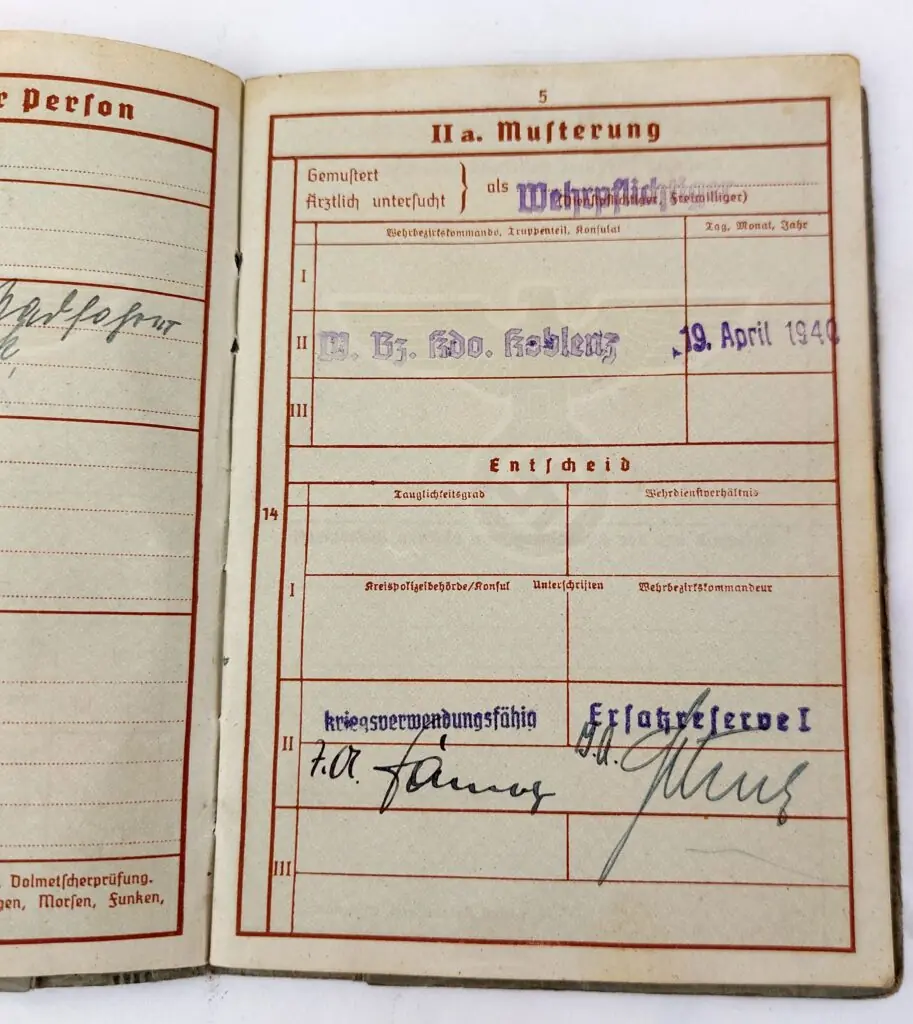 r Person
Radfahrer
Dolmetscherprüfung.
gen, Morsen, Funken,
5
II a. Musterung
Gemustert
Ärztlich untersucht } als Wehrpflichtiger
(Dienstpflichtiger, Freiwilliger)
Wehrbezirkskommando, Truppenteil, Konsulat Tag, Monat, Jahr
I
II W. Bz. Kdo. Koblenz 19. April 1940
III
Entscheid
14
Tauglichkeitsgrad Wehrdienstverhältnis
I
Kreispolizeibehörde/Konsul Unterschriften Wehrbezirkskommandeur
kriegsverwendungsfähig Ersatzreserve I
II
J.A. J.A.
III